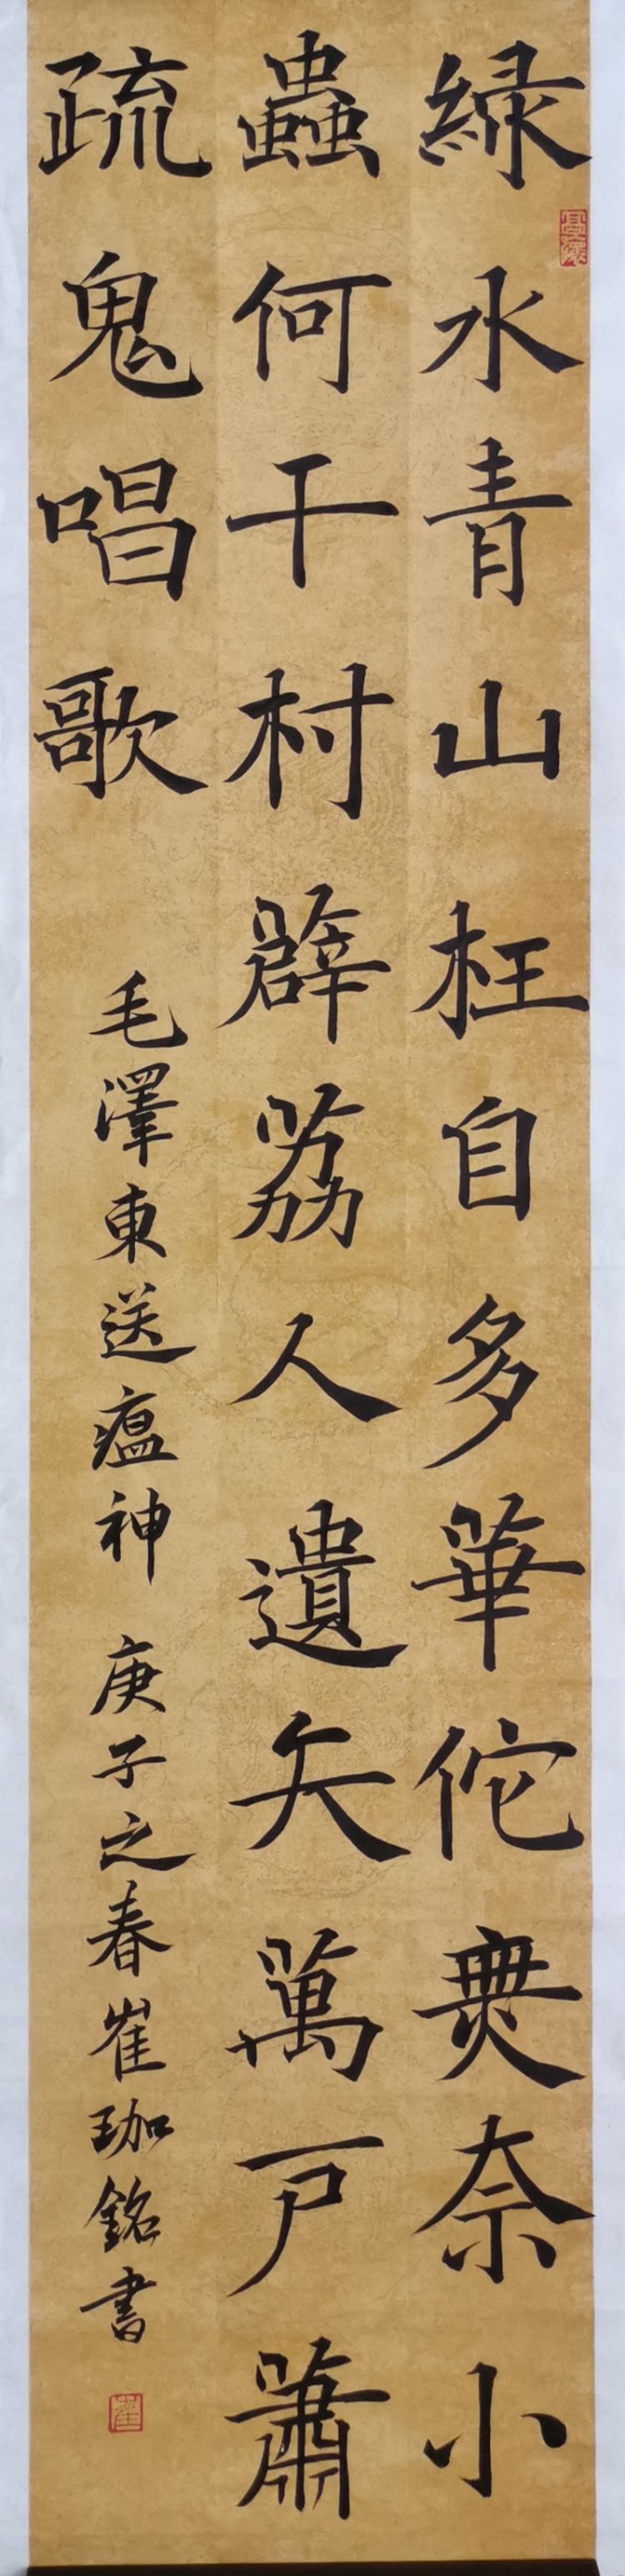 綠水青山枉自多華佗無奈小
蟲何干村薜荔人遺矢萬戶蕭
疏鬼唱歌 毛澤東送瘟神 庚子之春崔珈銘書
崔